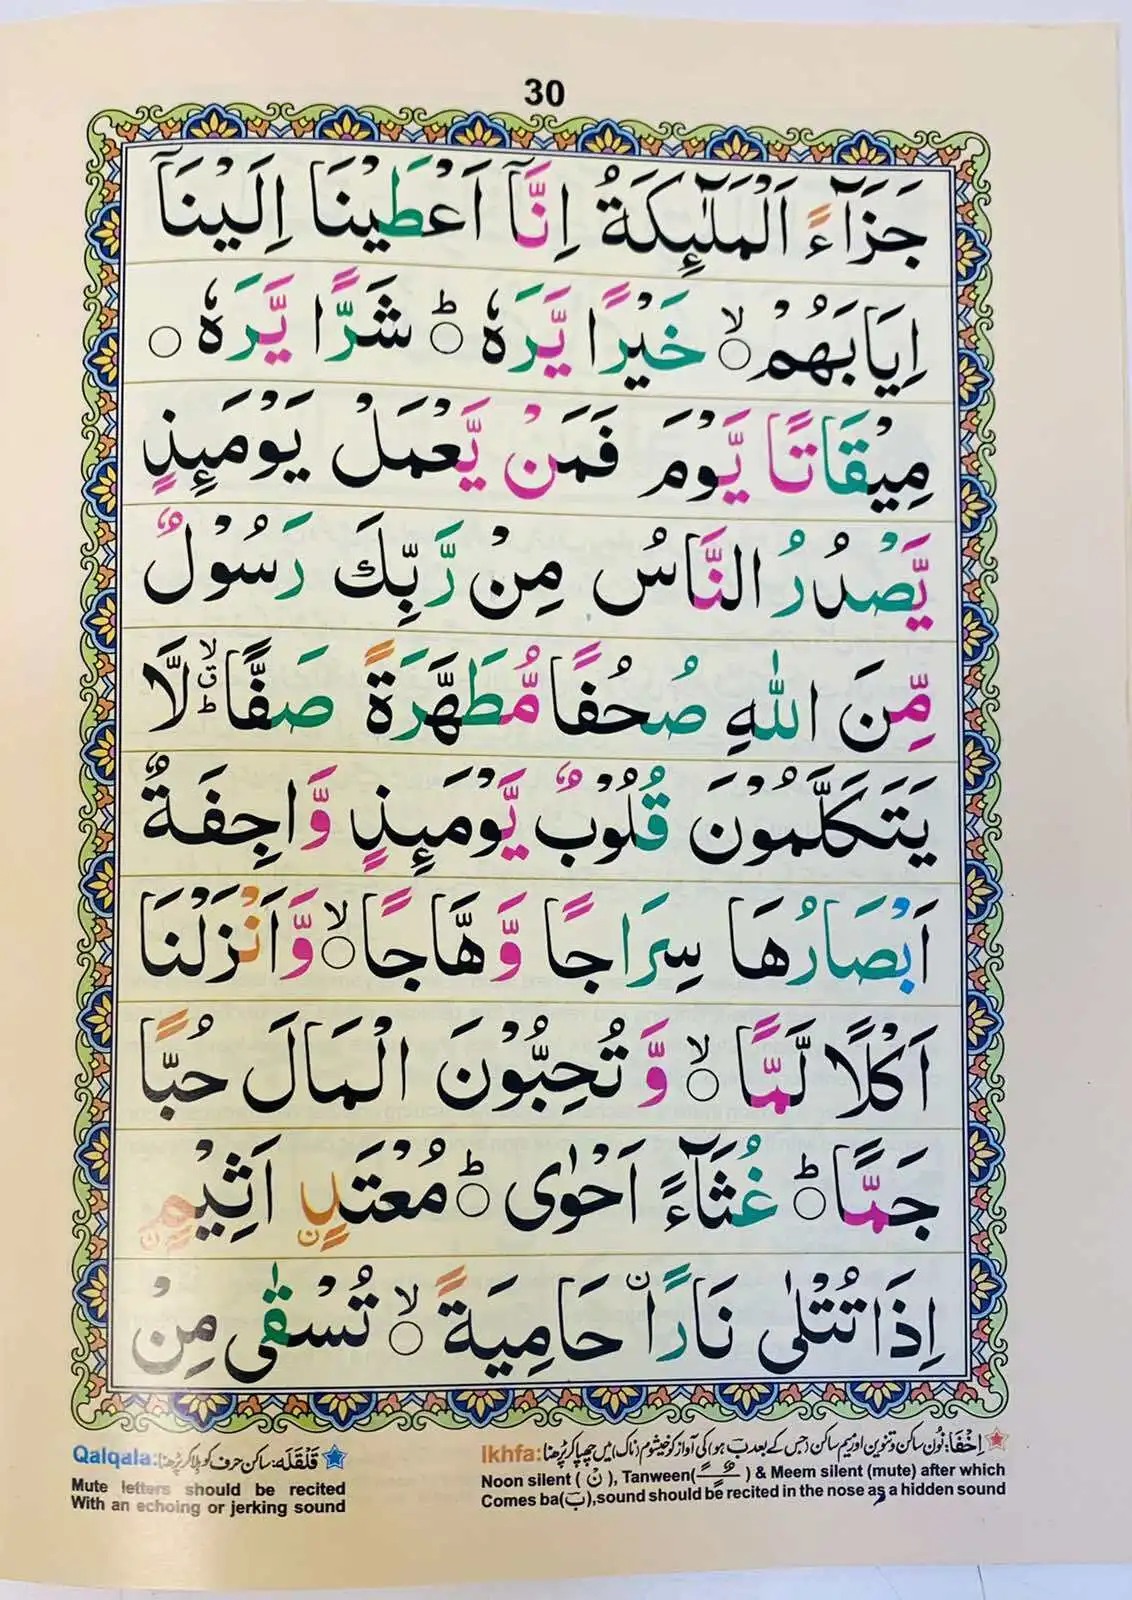 30
جَزَآءً اَلْمَلٰٓئِكَةُ اِنَّآ اَعْطَيْنَا اِلَيْنَآ
اِيَابَهُمْ ۙ○ خَيْرًا يَّرَهٗ ○ؕ شَرًّا يَّرَهٗ ○
مِيْقَاتًا يَّوْمَ فَمَنْ يَّعْمَلْ يَوْمَئِذٍ
يَّصْدُرُ النَّاسُ مِنْ رَّبِّكَ رَسُوْلٌ
مِّنَ اللّٰهِ صُحُفًا مُّطَهَّرَةً صَفًّا ؕۙق لَّا
يَتَكَلَّمُوْنَ قُلُوْبٌ يَّوْمَئِذٍ وَّاجِفَةٌ
اَبْصَارُهَا سِرَاجًا وَّهَّاجًا ۙ○ وَّاَنْزَلْنَا
اَكْلًا لَّمًّا ۙ○ وَّتُحِبُّوْنَ الْمَالَ حُبًّا
جَمًّا ○ؕ غُثَآءً اَحْوٰى ○ؕ مُعْتَدٍ اَثِيْمٍ
اِذَا تُتْلٰى نَارًا حَامِيَةً ۙ○ تُسْقٰى مِنْ
اِخفَا: نُون ساکن و تنوین اور میم ساکن (جس کے بعد بَ ہو) کی آواز کو خیشوم (ناک) میں چھپا کر پڑھنا
Ikhfa:
Noon silent ( نْ ), Tanween( ـًـٍـٌ ) & Meem silent (mute) after which
Comes ba(بَ),sound should be recited in the nose as a hidden sound
قَلقَلَه: ساکن حرف کو ہلا کر پڑھنا
Qalqala:
Mute letters should be recited
With an echoing or jerking sound